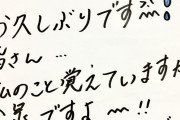 お久しぶりです
皆さん…
私のこと覚えていますか
ですよ〜!!